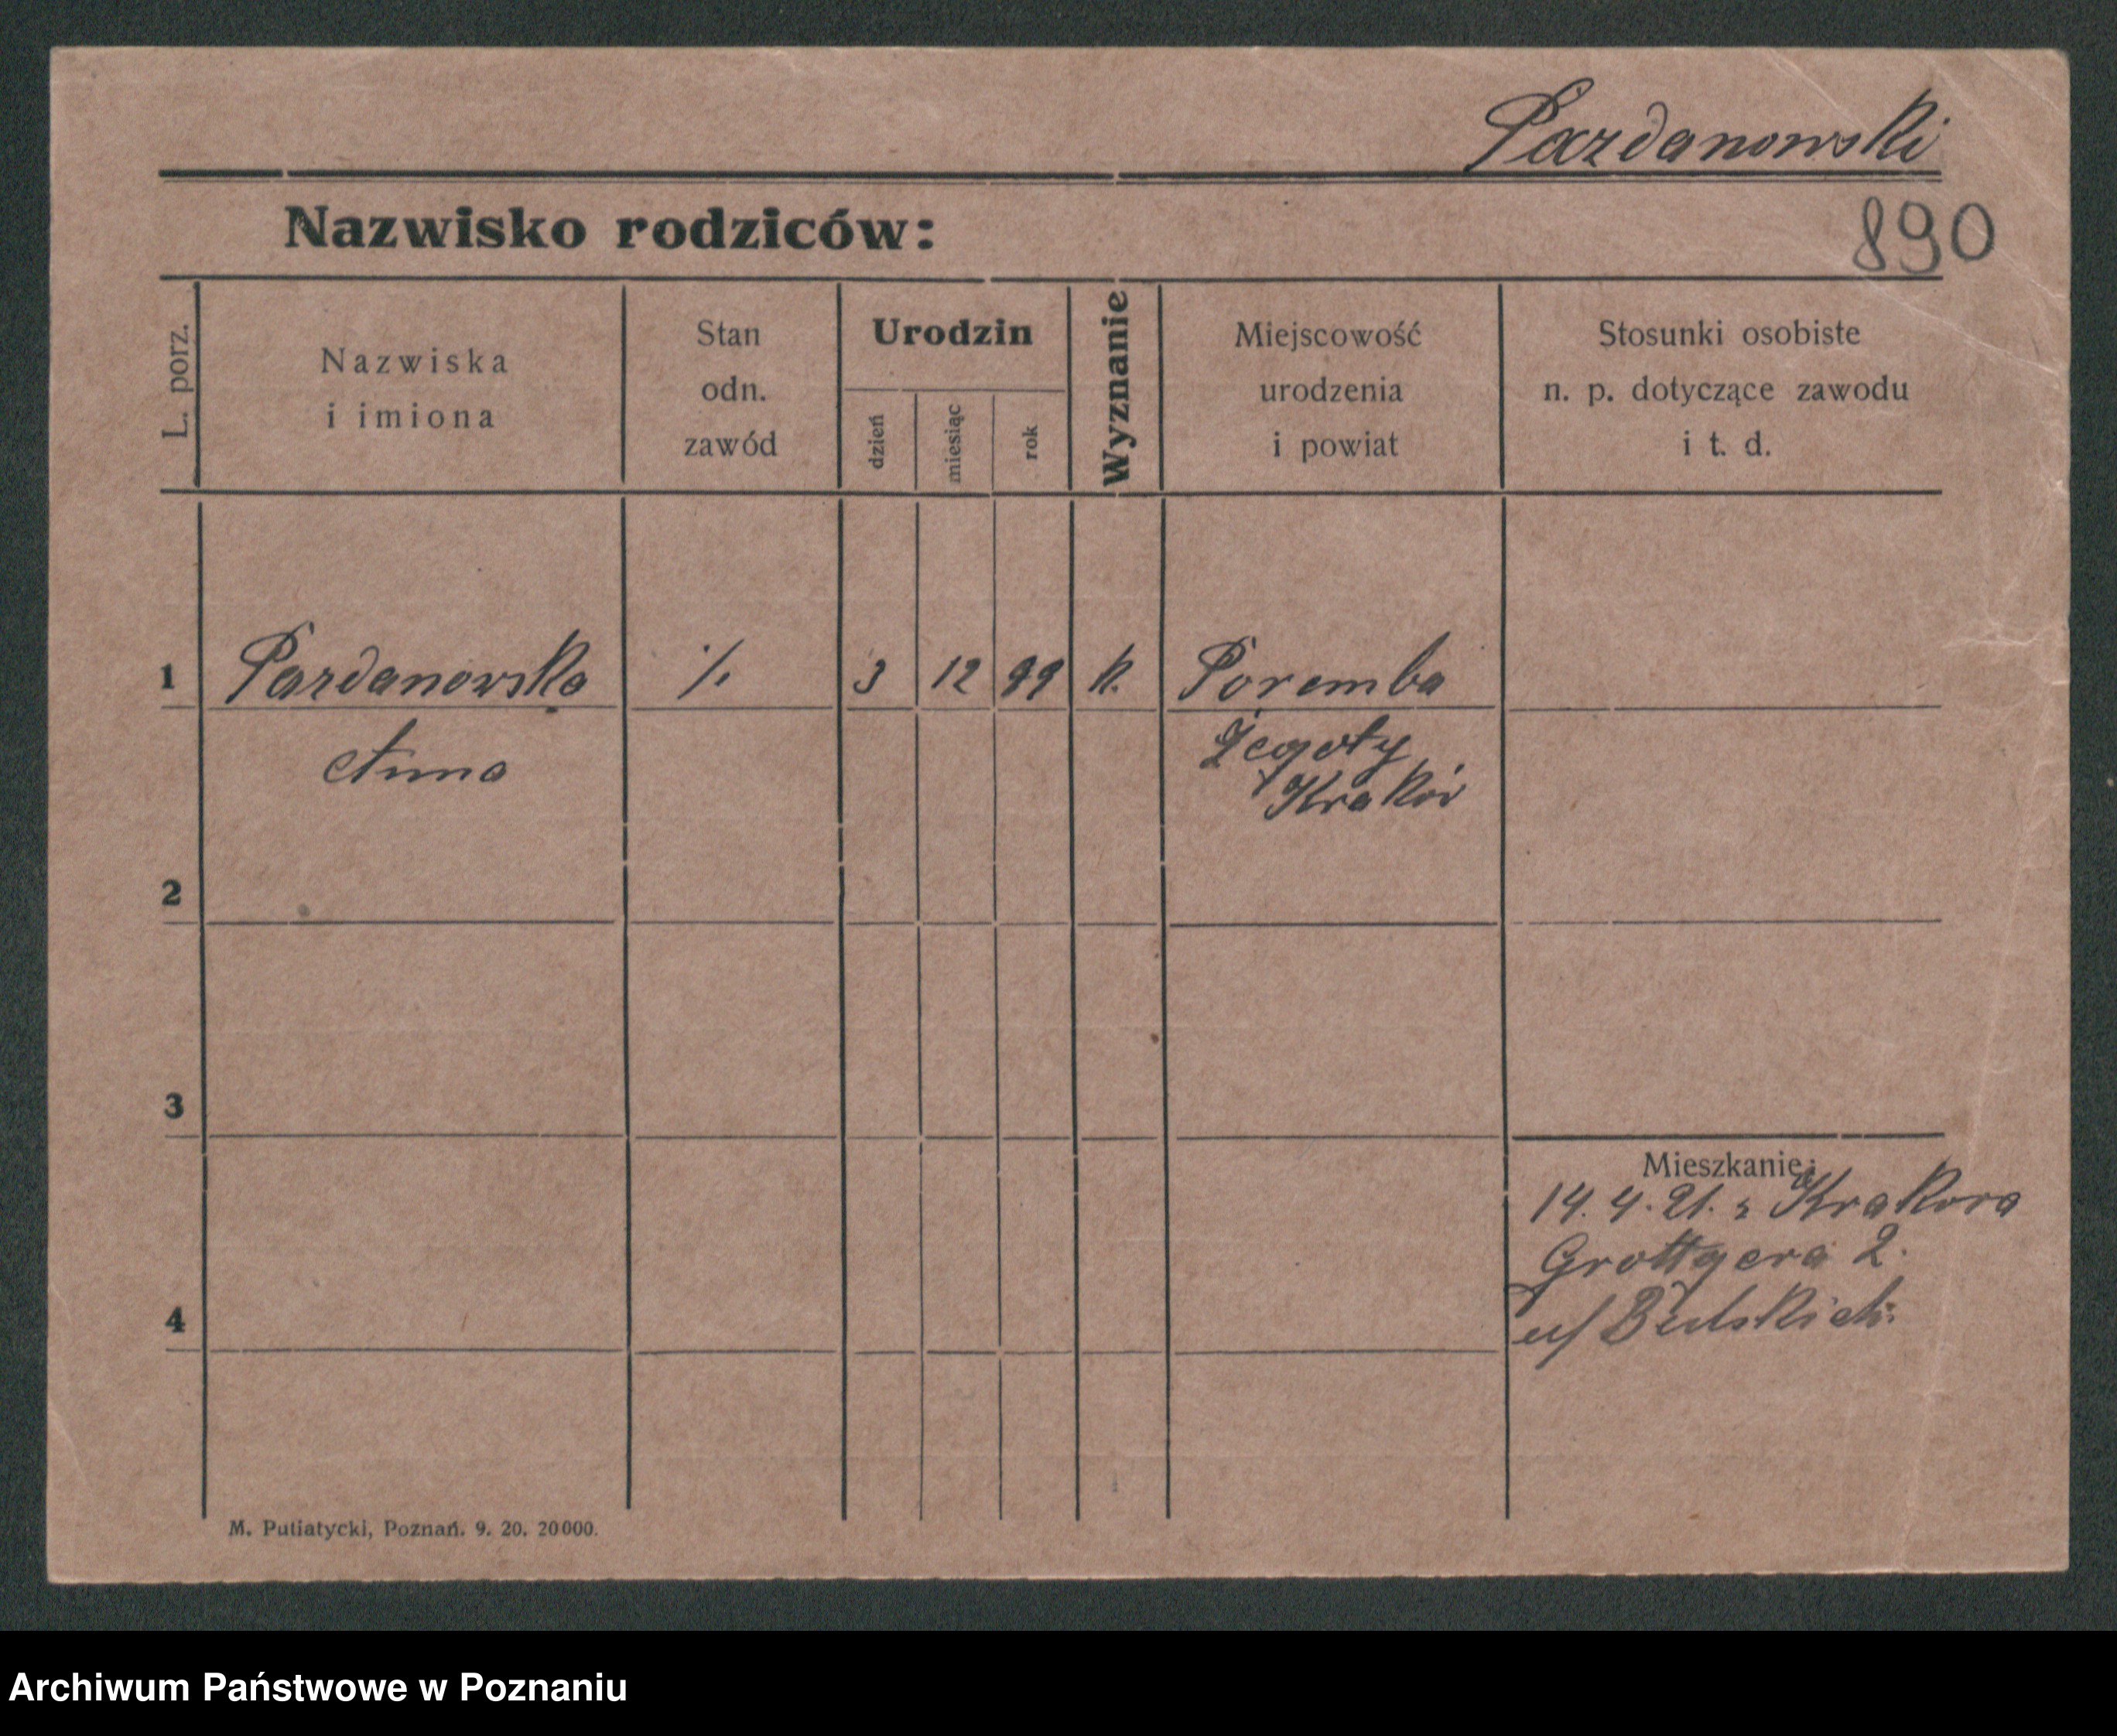 Pazdanowski
Nazwisko rodziców:
890
L. porz.
Nazwiska
i imiona
Stan
odn.
zawód
Urodzin
dzień
miesiąc
rok
Wyznanie
Miejscowość
urodzenia
i powiat
Stosunki osobiste
n. p. dotyczące zawodu
i t. d.
1 Pazdanowska ·/. 3 12 99 k. Poremba
Anna Żegoty
Kraków
2
3
Mieszkanie:
14. 4. 21. z Krakowa
Grottgera 2.
4
M. Putiatycki, Poznań. 9. 20. 20000.
Archiwum Państwowe w Poznaniu